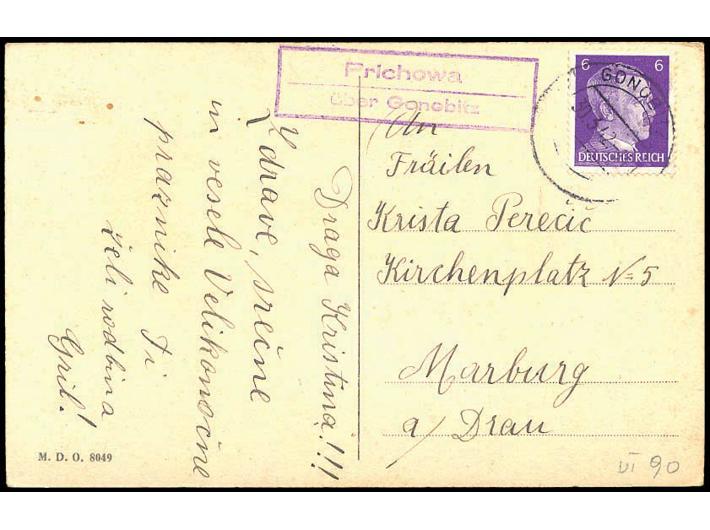 Prichowa
über Gonobitz
6 6
GONOBI
DEUTSCHES REICH
Draga Kristina!!!
Zdrave, srečne
in vesele Velikonočne
praznike Ti
želi rodbina
Gril!
An
Fräilen
Krista Perecic
Kirchenplatz N-5
Marburg
a/ Drau
M. D. O. 8049
VI 90